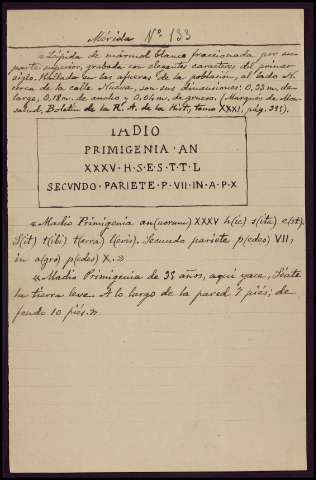 Mérida Nº 133
«Lápida de mármol blanco fraccionada por su
parte superior, grabada con elegantes caracteres del primer
siglo. Hallada en las afueras de la población, al lado N.
cerca de la calle Nueva, son sus dimensiones: 0,33 m. de
largo, 0,18 m. de ancho y 0,04 m. de grueso. (Marqués de Mon-
salud, Boletín de la R. A. de la Hist, tomo XXXI, pág. 395).
IADIO
PRIMIGENIA · AN
XXXV · H · S · E · S · T · T · L
SECVNDO · PARIETE · P · VII · IN · A · P · X
«Madio Primigenia an(norum) XXXV h(ic) s(ita) e(st).
S(it) t(ibi) t(erra) l(evis). Secundo pariete p(edes) VII,
in a(gro) p(edes) X.»
«Madio Primigenia de 35 años, aquí yace, Séate
la tierra leve. A lo largo de la pared 7 piés; de
fondo 10 piés.»